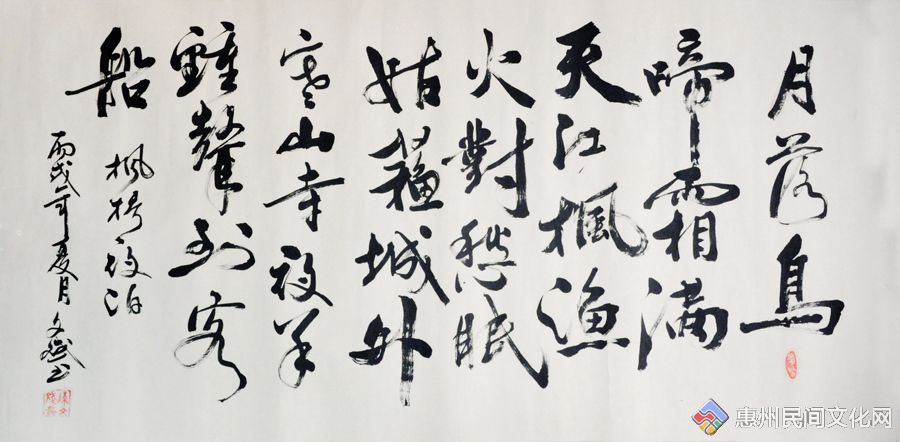 月落烏
啼霜滿
天江楓漁
火對愁眠
姑蘇城外
寒山寺夜半
鐘聲到客
船
楓橋夜泊
丙戌年夏月文斌书
惠州民间文化网